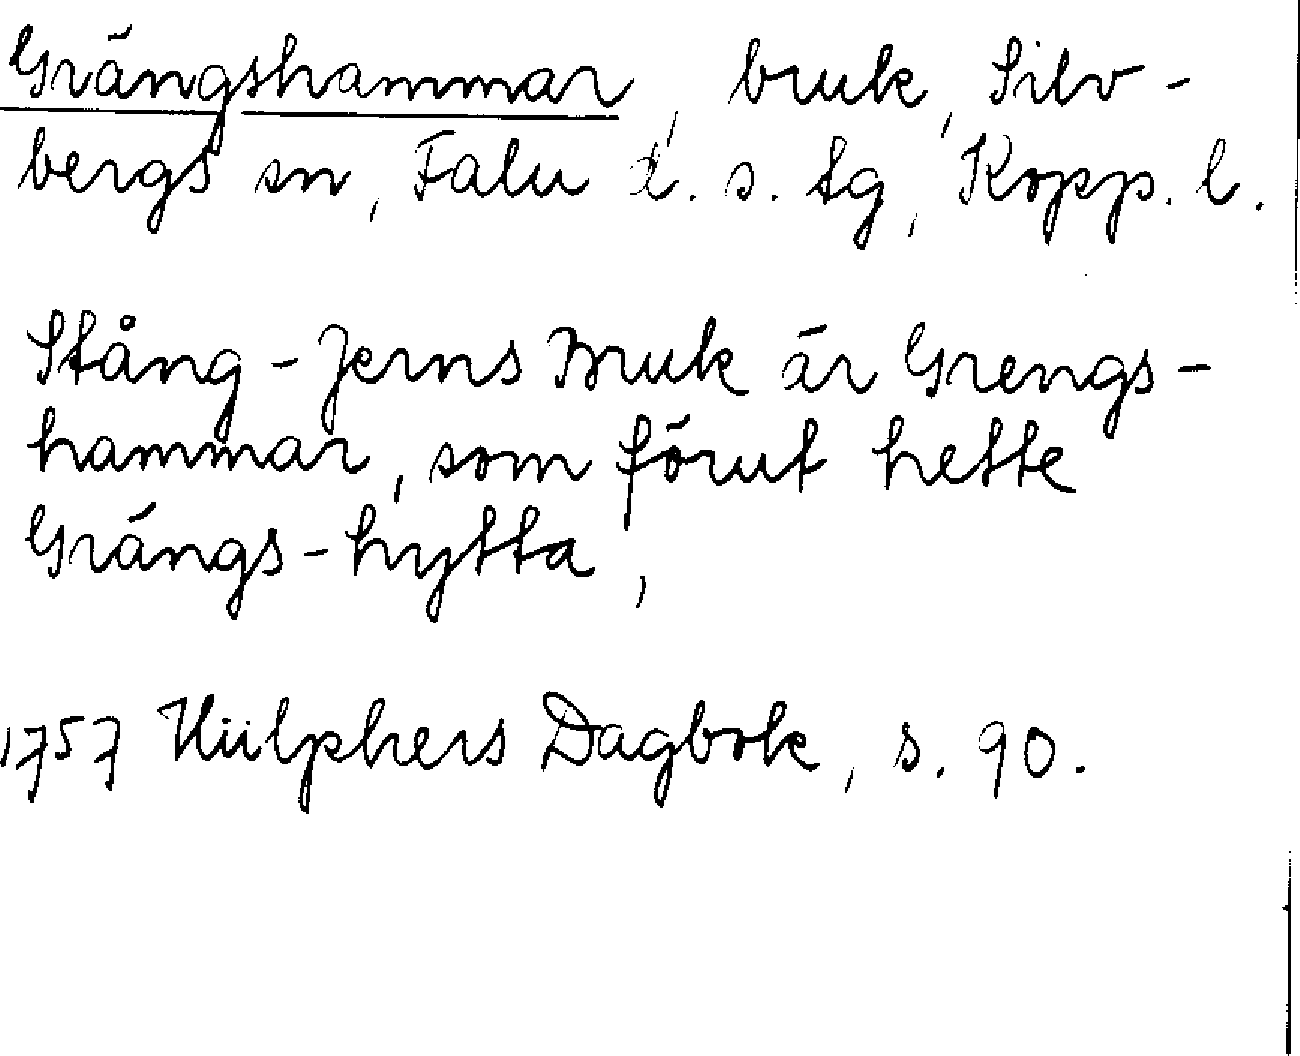 Grängshammar, bruk, Silv-
bergs sn, Falu d. s. tg, Kopp. l.
Stång-Jerns Bruk är Grengs-
hammar, som förut hette
Grängs-hytta,
1757 Hülphers Dagbok, s. 90.